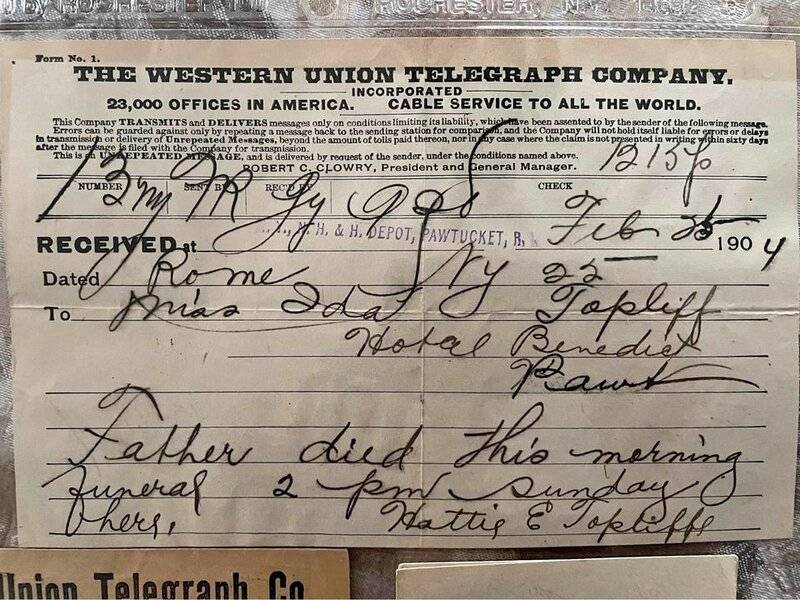 BY ROCHESTER ROCHESTER, N.Y. 14692
Form No. 1.
THE WESTERN UNION TELEGRAPH COMPANY.
INCORPORATED
23,000 OFFICES IN AMERICA. CABLE SERVICE TO ALL THE WORLD.
This Company TRANSMITS and DELIVERS messages only on conditions limiting its liability, which have been assented to by the sender of the following message.
Errors can be guarded against only by repeating a message back to the sending station for comparison, and the Company will not hold itself liable for errors or delays
in transmission or delivery of Unrepeated Messages, beyond the amount of tolls paid thereon, nor in any case where the claim is not presented in writing within sixty days
after the message is filed with the Company for transmission.
This is an UNREPEATED MESSAGE, and is delivered by request of the sender, under the conditions named above.
ROBERT C. CLOWRY, President and General Manager.
NUMBER SENT BY REC'D BY CHECK
N. H. & H. DEPOT, PAWTUCKET, R.
RECEIVED at Feb 25 1904
Dated Rome Ny 25
To Miss Ida Topliff
Hotel Benedict
Pawt
Father died this morning
funeral 2 pm Sunday
here, Hattie E Topliffe
Union Telegraph Co